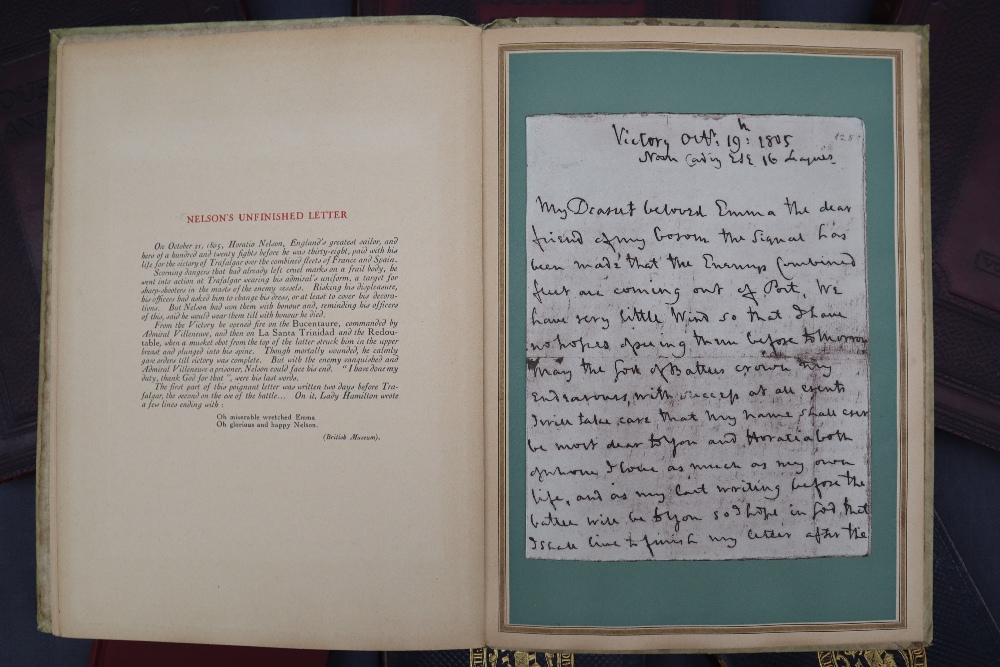 NELSON'S UNFINISHED LETTER
On October 21, 1805, Horatio Nelson, England's greatest sailor, and
hero of a hundred and twenty fights before he was thirty-eight, paid with his
life for the victory of Trafalgar over the combined fleets of France and Spain.
Scorning dangers that had already left cruel marks on a frail body, he
went into action at Trafalgar wearing his admiral's uniform, a target for
sharp-shooters in the masts of the enemy vessels. Risking his displeasure,
his officers had asked him to change his dress, or at least to cover his decora-
tions. But Nelson had won them with honour and, reminding his officers
of this, said he would wear them till with honour he died.
From the Victory he opened fire on the Bucentaure, commanded by
Admiral Villeneuve, and then on La Santa Trinidad and the Redou-
table, when a musket shot from the top of the latter struck him in the upper
breast and plunged into his spine. Though mortally wounded, he calmly
gave orders till victory was complete. But with the enemy vanquished and
Admiral Villeneuve a prisoner, Nelson could face his end. "I have done my
duty, thank God for that", were his last words.
The first part of this poignant letter was written two days before Tra-
falgar, the second on the eve of the battle... On it, Lady Hamilton wrote
a few lines ending with :
Oh miserable wretched Emma
Oh glorious and happy Nelson.
(British Museum).
Victory Octr. 19th: 1805
Noon Cadiz ESE 16 Leagues
My Dearest beloved Emma the dear
friend of my bosom the signal has
been made that the Enemys Combined
fleet are coming out of Port, We
have very little Wind so that I have
no hopes of seeing them before to morrow
May the God of Battles crown my
Endeavours with success at all events
I will take care that my name shall ever
be most dear to you and Horatia both
of whom I love as much as my own
life, and as my last writing before the
battle will be to you so I hope in God that
I shall live to finish my letter after the